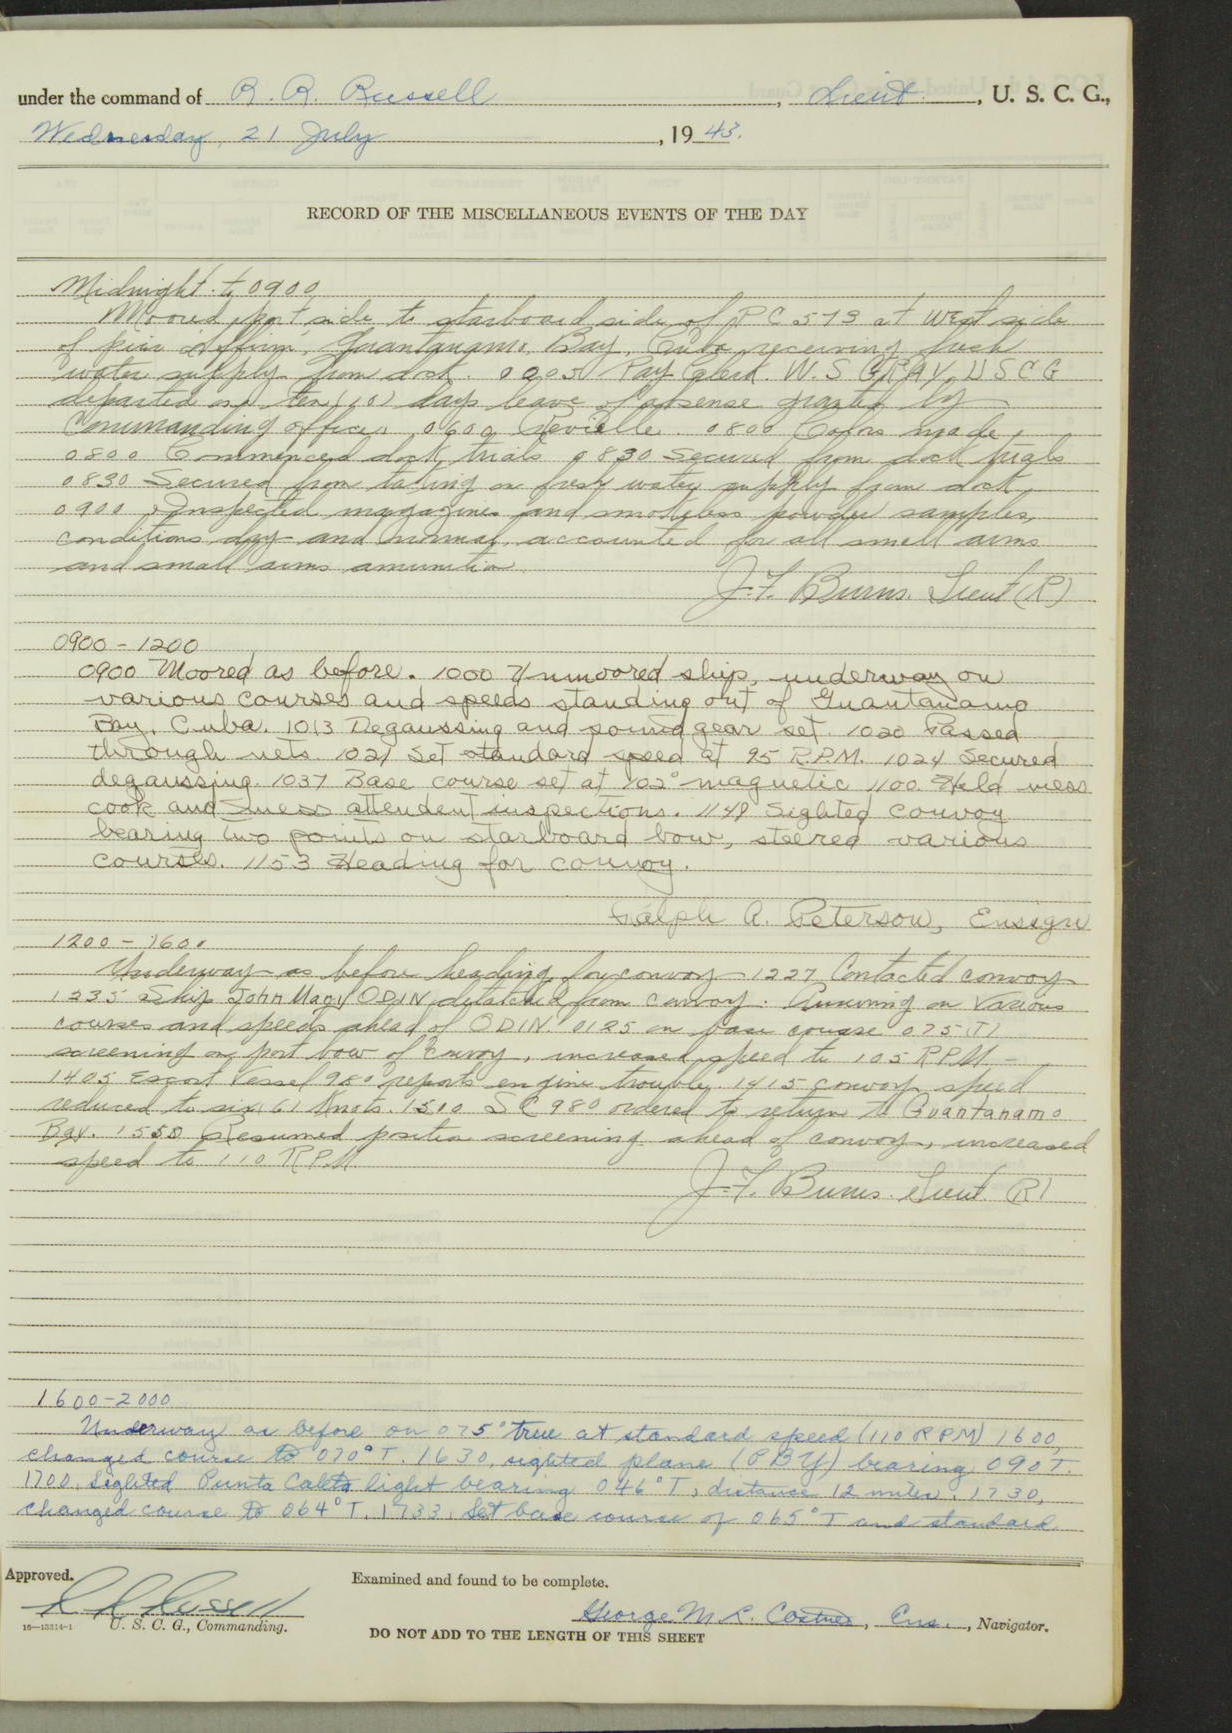 under the command of R. R. Russell, Lieut., U. S. C. G.,
Wednesday, 21 July, 1943.
RECORD OF THE MISCELLANEOUS EVENTS OF THE DAY
Midnight to 0900
Moored port side to starboard side of PC 579 at West side
of pier, Guantanamo, Bay, Cuba, receiving fresh
water supply from dock. 0005 Pay Clerk. W. S GRAY USCG
departed on ten (10) days leave of absense granted by
Commanding officer, 0600 Reveille. 0800 Colors made,
0800 Commenced dock trials 0830 Secured from dock trials
0830 Secured from taking on fresh water supply from dock
0900, Inspected magazines and smokeless powder samples,
conditions dry and normal, accounted for all small arms
and small arms amunition.
J. F. Burns. Lieut (R)
0900 - 1200
0900 Moored as before. 1000 Unmoored ship, underway on
various courses and speeds standing out of Guantanamo
Bay, Cuba. 1013 Degaussing and sound gear set. 1020 Passed
through nets. 1021 Set standard speed at 95 R.P.M. 1024 Secured
degaussing. 1037 Base course set at 102° magnetic 1100 Held mess
cook and mess attendent inspections. 1148 Sighted convoy
bearing two points on starboard bow, steered various
courses. 1153 Heading for convoy.
Ralph A. Peterson, Ensign
1200 - 1600
Underway as before heading for convoy - 1227 Contacted convoy
1235 Ship John Mary ODIN detached from convoy. Running on Various
courses and speeds ahead of ODIN. 0125 on base course 075 (T)
screening on port bow of convoy, increased speed to 105 RPM -
1405 Escort Vessel 980 reports engine trouble. 1415 convoy speed
reduced to six (6) Knots. 1510 SC 980 ordered to return to Guantanamo
Bay. 1550 Resumed position screening ahead of convoy, increased
speed to 110 RPM
J. F. Burns. Lieut. (R)
1600-2000
Underway as before on 075° true at standard speed (110 RPM) 1600,
changed course to 070° T. 1630, sighted plane (PBY) bearing 090 T.
1700, Sighted Punta Caleta light bearing 046° T, distance 12 miles. 1730,
changed course to 064° T. 1733, Set base course of 065° T and standard
Approved. Examined and found to be complete.
R R Russell George M. R. Costner, Ens., Navigator.
16—13314-1 U. S. C. G., Commanding.
DO NOT ADD TO THE LENGTH OF THIS SHEET